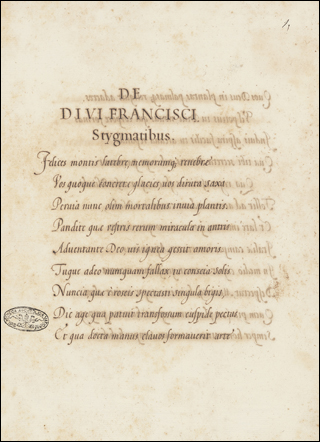 DE
DIVI FRANCISCI
Stygmatibus.
Felices montis latebræ, memorumq tenebræ
Vos quoque concretæ glacies, uos diruta saxa
Peruia nunc olim mortalibus inuia plantis
Pandite quæ uestris rerum miracula in antris
Aduentante Deo, uis ignea gessit amoris
Tuque adeo numquam fallax tu conscia solis
Nuncia quæ è roseis spectasti singula bigis
Dic age qua patuit transfossum cuspide pectus
Et qua docta manus clauos formauerit arte